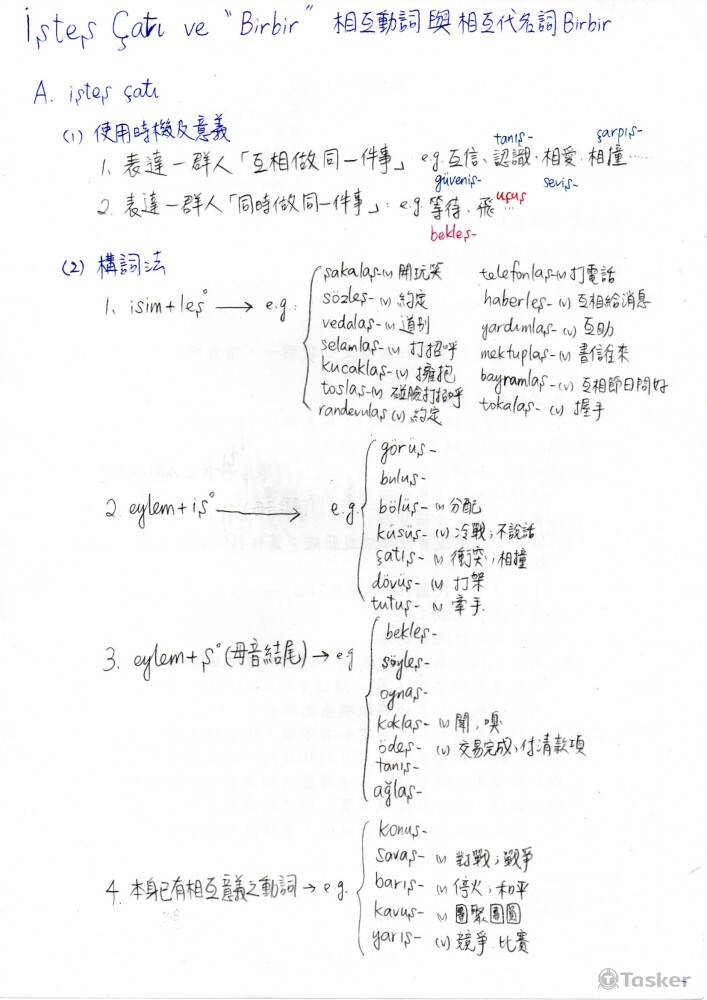 İşteş Çatı ve "Birbir" 相互動詞與相互代名詞 Birbir
A. işteş çatı
(1) 使用時機及意義
tanış- çarpış-
1. 表達一群人「互相做同一件事」 e.g. 互信、認識、相愛、相撞……
güveniş- seviş-
2. 表達一群人「同時做同一件事」: e.g. 等待、飛… uçuş
bekleş-
(2) 構詞法
1. isim+leş° → e.g.:
şakalaş- (v) 開玩笑 telefonlaş-(v) 打電話
sözleş- (v) 約定 haberleş- (v) 互相給消息
vedalaş- (v) 道別 yardımlaş- (v) 互助
selamlaş- (v) 打招呼 mektuplaş- (v) 書信往來
kucaklaş- (v) 擁抱 bayramlaş- (v) 互相節日問好
toslaş- (v) 碰臉打招呼 tokalaş- (v) 握手
randevulaş (v) 約定
2. eylem+iş° → e.g.
görüş-
buluş-
bölüş- (v) 分配
küsüş- (v) 冷戰;不說話
şatış- (v) 衝突;相撞
dövüş- (v) 打架
tutuş- (v) 牽手.
3. eylem+ş° (母音結尾) → e.g
bekleş-
söyleş-
oynaş-
koklaş- (v) 聞,嗅
ödeş- (v) 交易完成,付清款項
tanış-
ağlaş-
4. 本身已有相互意義之動詞 → e.g.
konuş-
savaş- (v) 對戰;戰爭
barış- (v) 停火;和平
kavuş- (v) 團聚團圓
yarış- (v) 競爭.比賽
Tasker